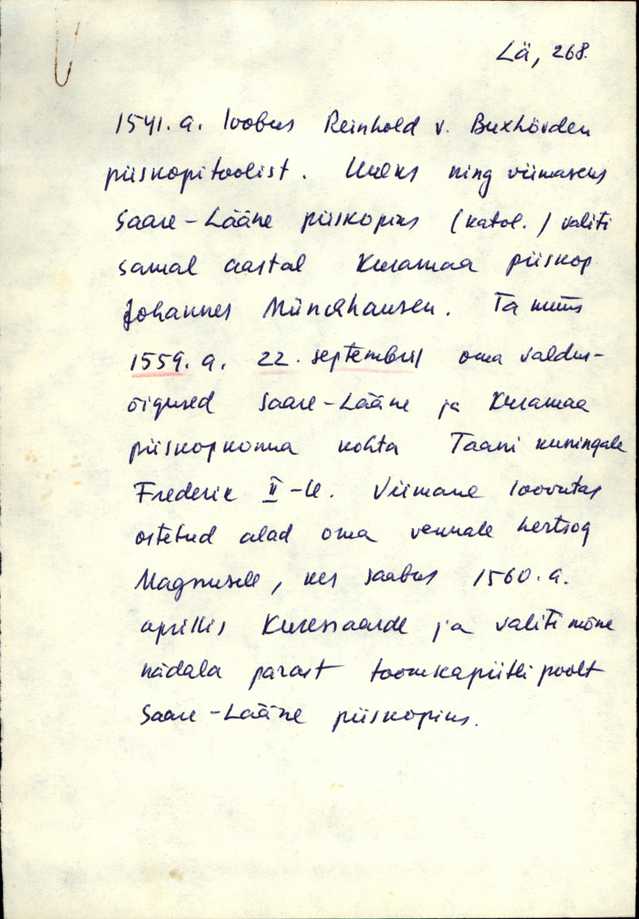 Lä, 268.
1541. a. loobus Reinhold v. Buxhövden
piiskopitoolist. Uueks ning viimaseks
Saare-Lääne piiskopiks (katol.) valiti
samal aastal Kuramaa piiskop
Johannes Münchhausen. Ta müüs
1559. a. 22. septembril oma valdus-
õigused Saare-Lääne ja Kuramaa
piiskopkonna kohta Taani kuningale
Frederik II-le. Viimane loovutas
ostetud alad oma vennale hertsog
Magnusele, kes saabus 1560. a.
aprillis Kuressaarde ja valiti mõne
nädala pärast toomkapiitli poolt
Saare-Lääne piiskopiks.